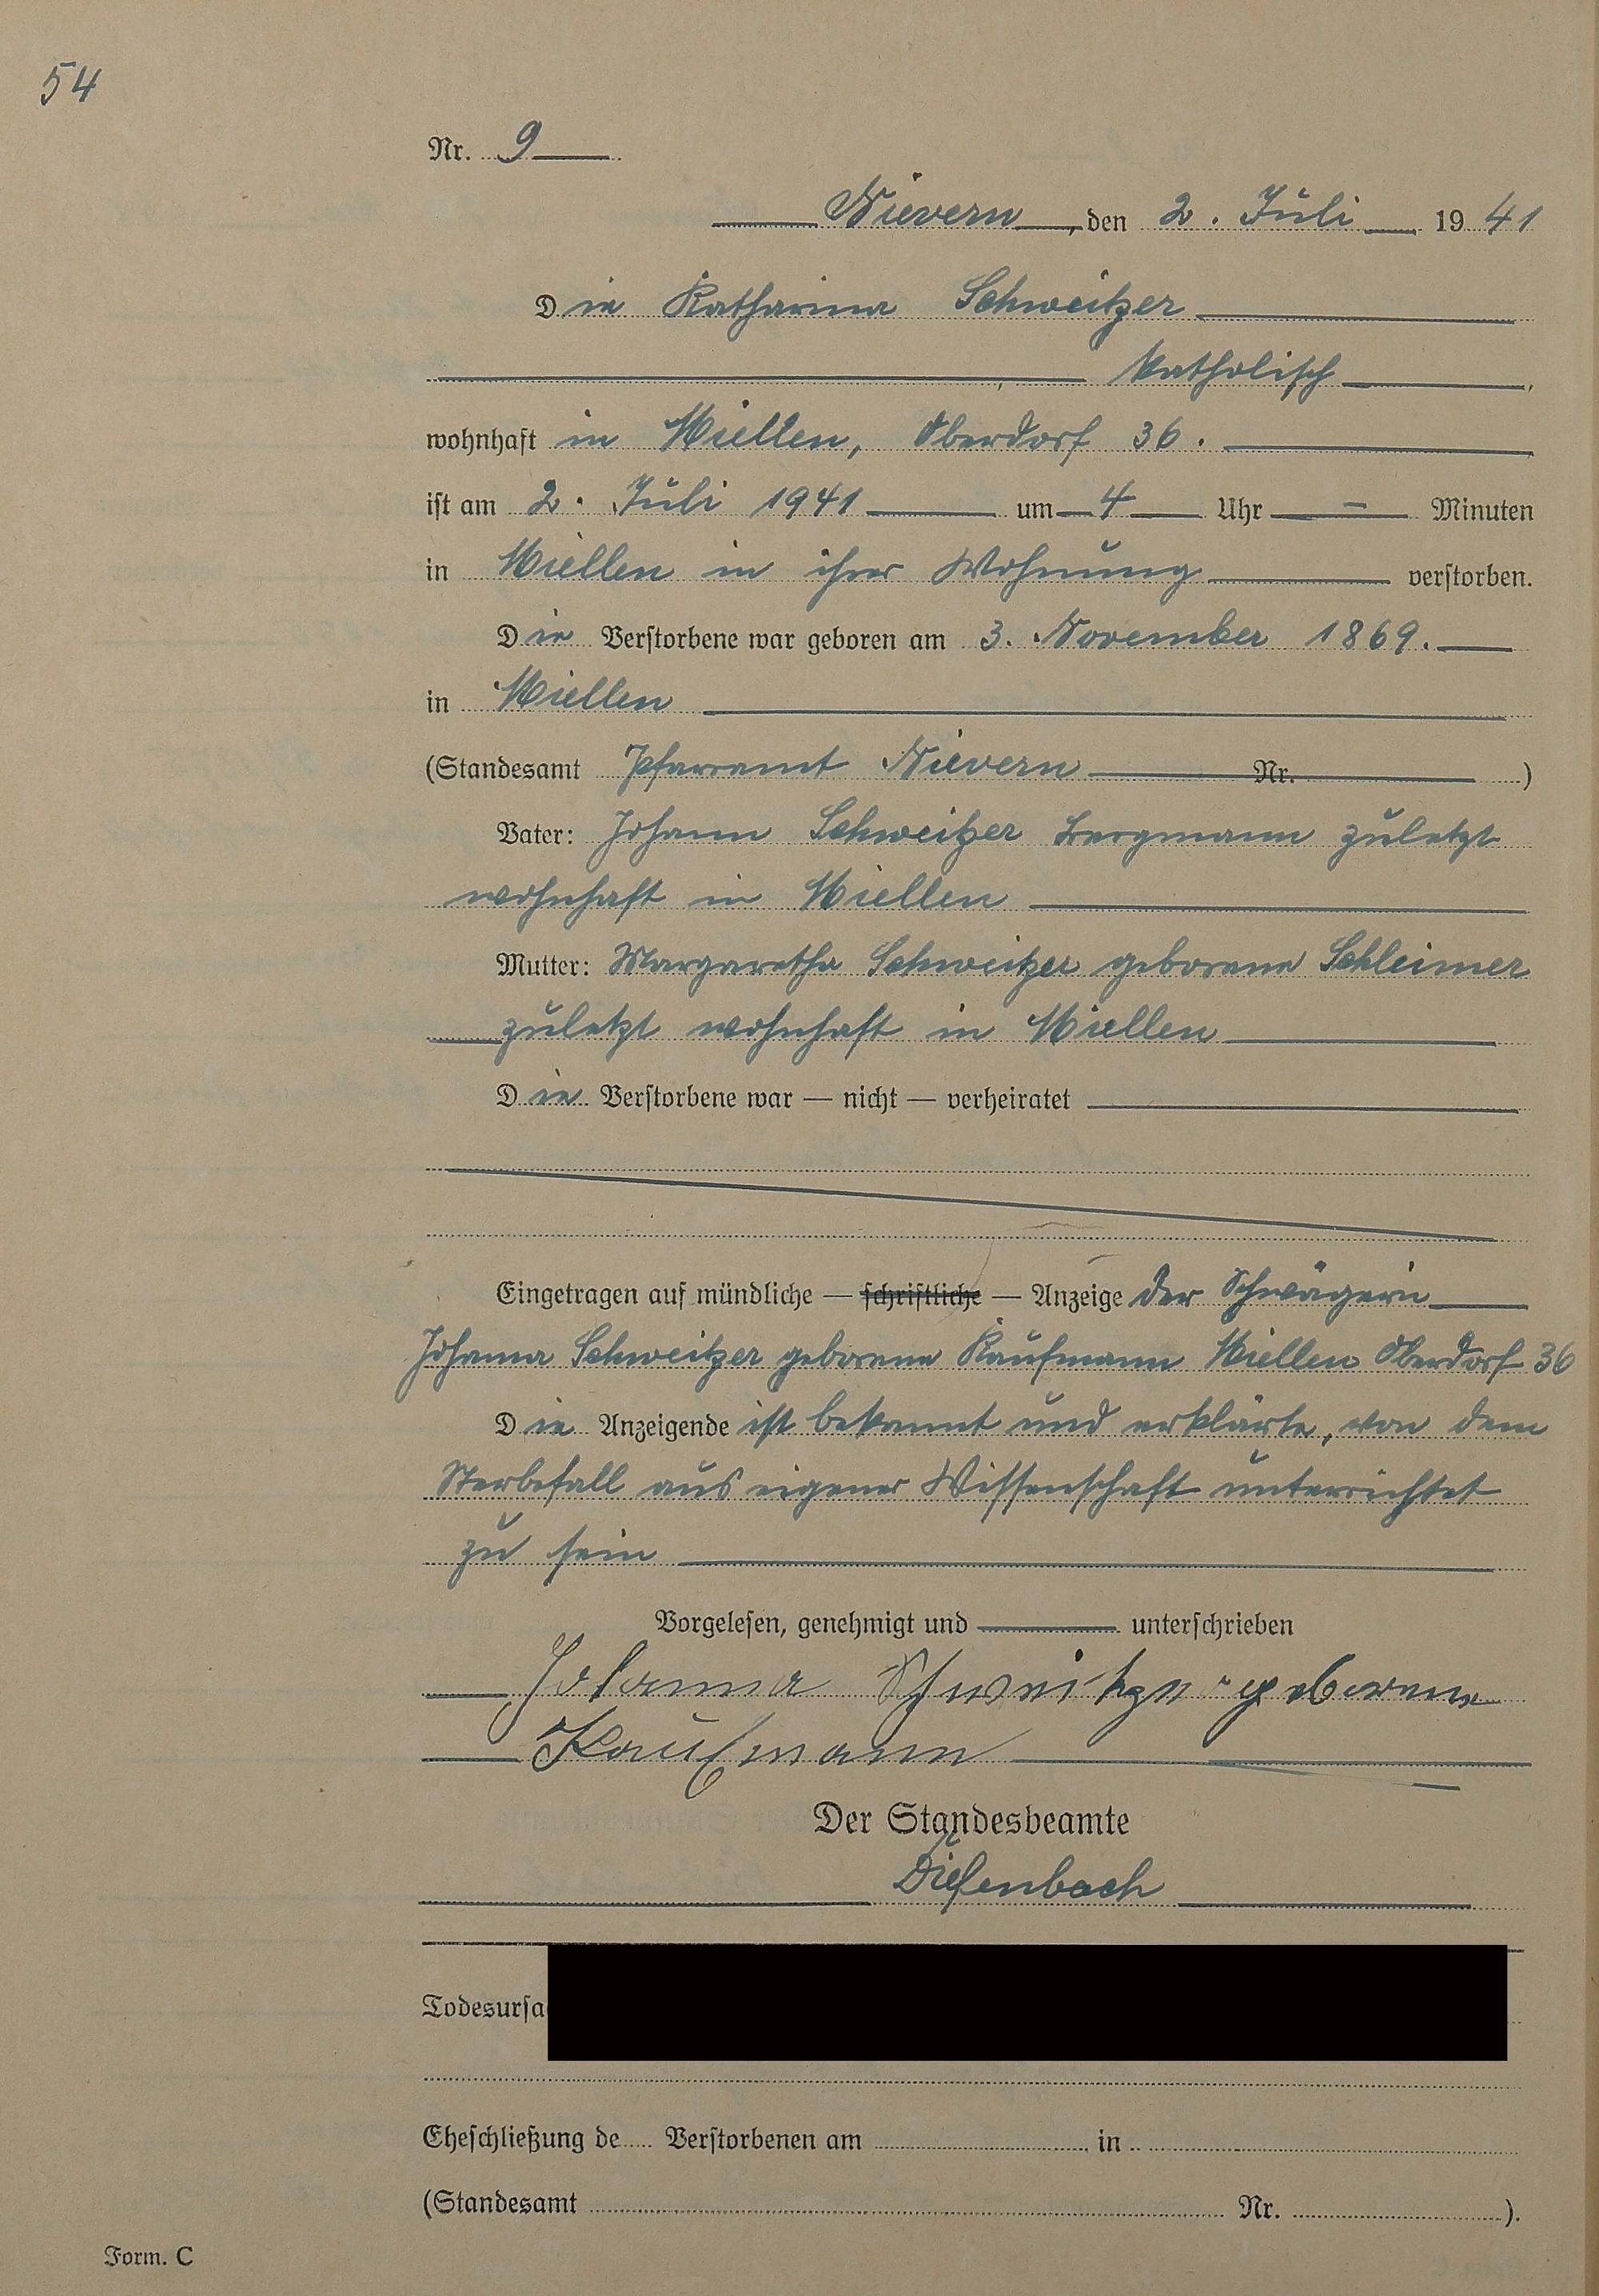 54
Nr. 9
Nievern, den 2. Juli 1941
Die Katharina Schweitzer
katholisch,
wohnhaft in Miellen, Oberdorf 36.
ist am 2. Juli 1941 um 4 Uhr – Minuten
in Miellen in ihrer Wohnung verstorben.
Die Verstorbene war geboren am 3. November 1869.
in Miellen
(Standesamt Pfarramt Nievern Nr. )
Vater: Johann Schweitzer Bergmann zuletzt
wohnhaft in Miellen
Mutter: Margaretha Schweitzer geborene Schleimer
zuletzt wohnhaft in Miellen
Die Verstorbene war — nicht — verheiratet
Eingetragen auf mündliche — schriftliche — Anzeige der Schwägerin
Johanna Schweitzer geborene Kaufmann Miellen Oberdorf 36
Die Anzeigende ist bekannt und erklärte, von dem
Sterbefall aus eigener Wissenschaft unterrichtet
zu sein
Vorgelesen, genehmigt und unterschrieben
Johanna Schweitzer geborene
Kaufmann
Der Standesbeamte
Diefenbach
Todesursa
Eheschließung de Verstorbenen am in
(Standesamt Nr. ).
Form. C